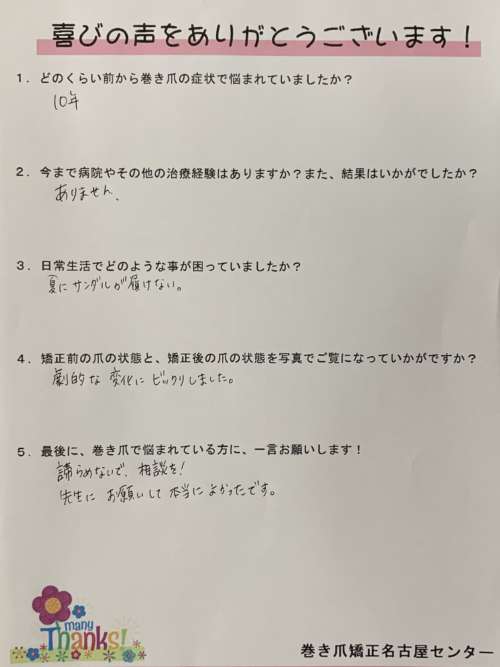 喜びの声をありがとうございます！
１．どのくらい前から巻き爪の症状で悩まれていましたか？
10年
２．今まで病院やその他の治療経験はありますか？また、結果はいかがでしたか？
ありません、
３．日常生活でどのような事が困っていましたか？
夏にサンダルが履けない。
４．矯正前の爪の状態と、矯正後の爪の状態を写真でご覧になっていかがですか？
劇的な変化にビックリしました。
５．最後に、巻き爪で悩まれている方に、一言お願いします！
諦らめないで、相談を！
先生にお願いして本当によかったです。
many
Thanks!
巻き爪矯正名古屋センター